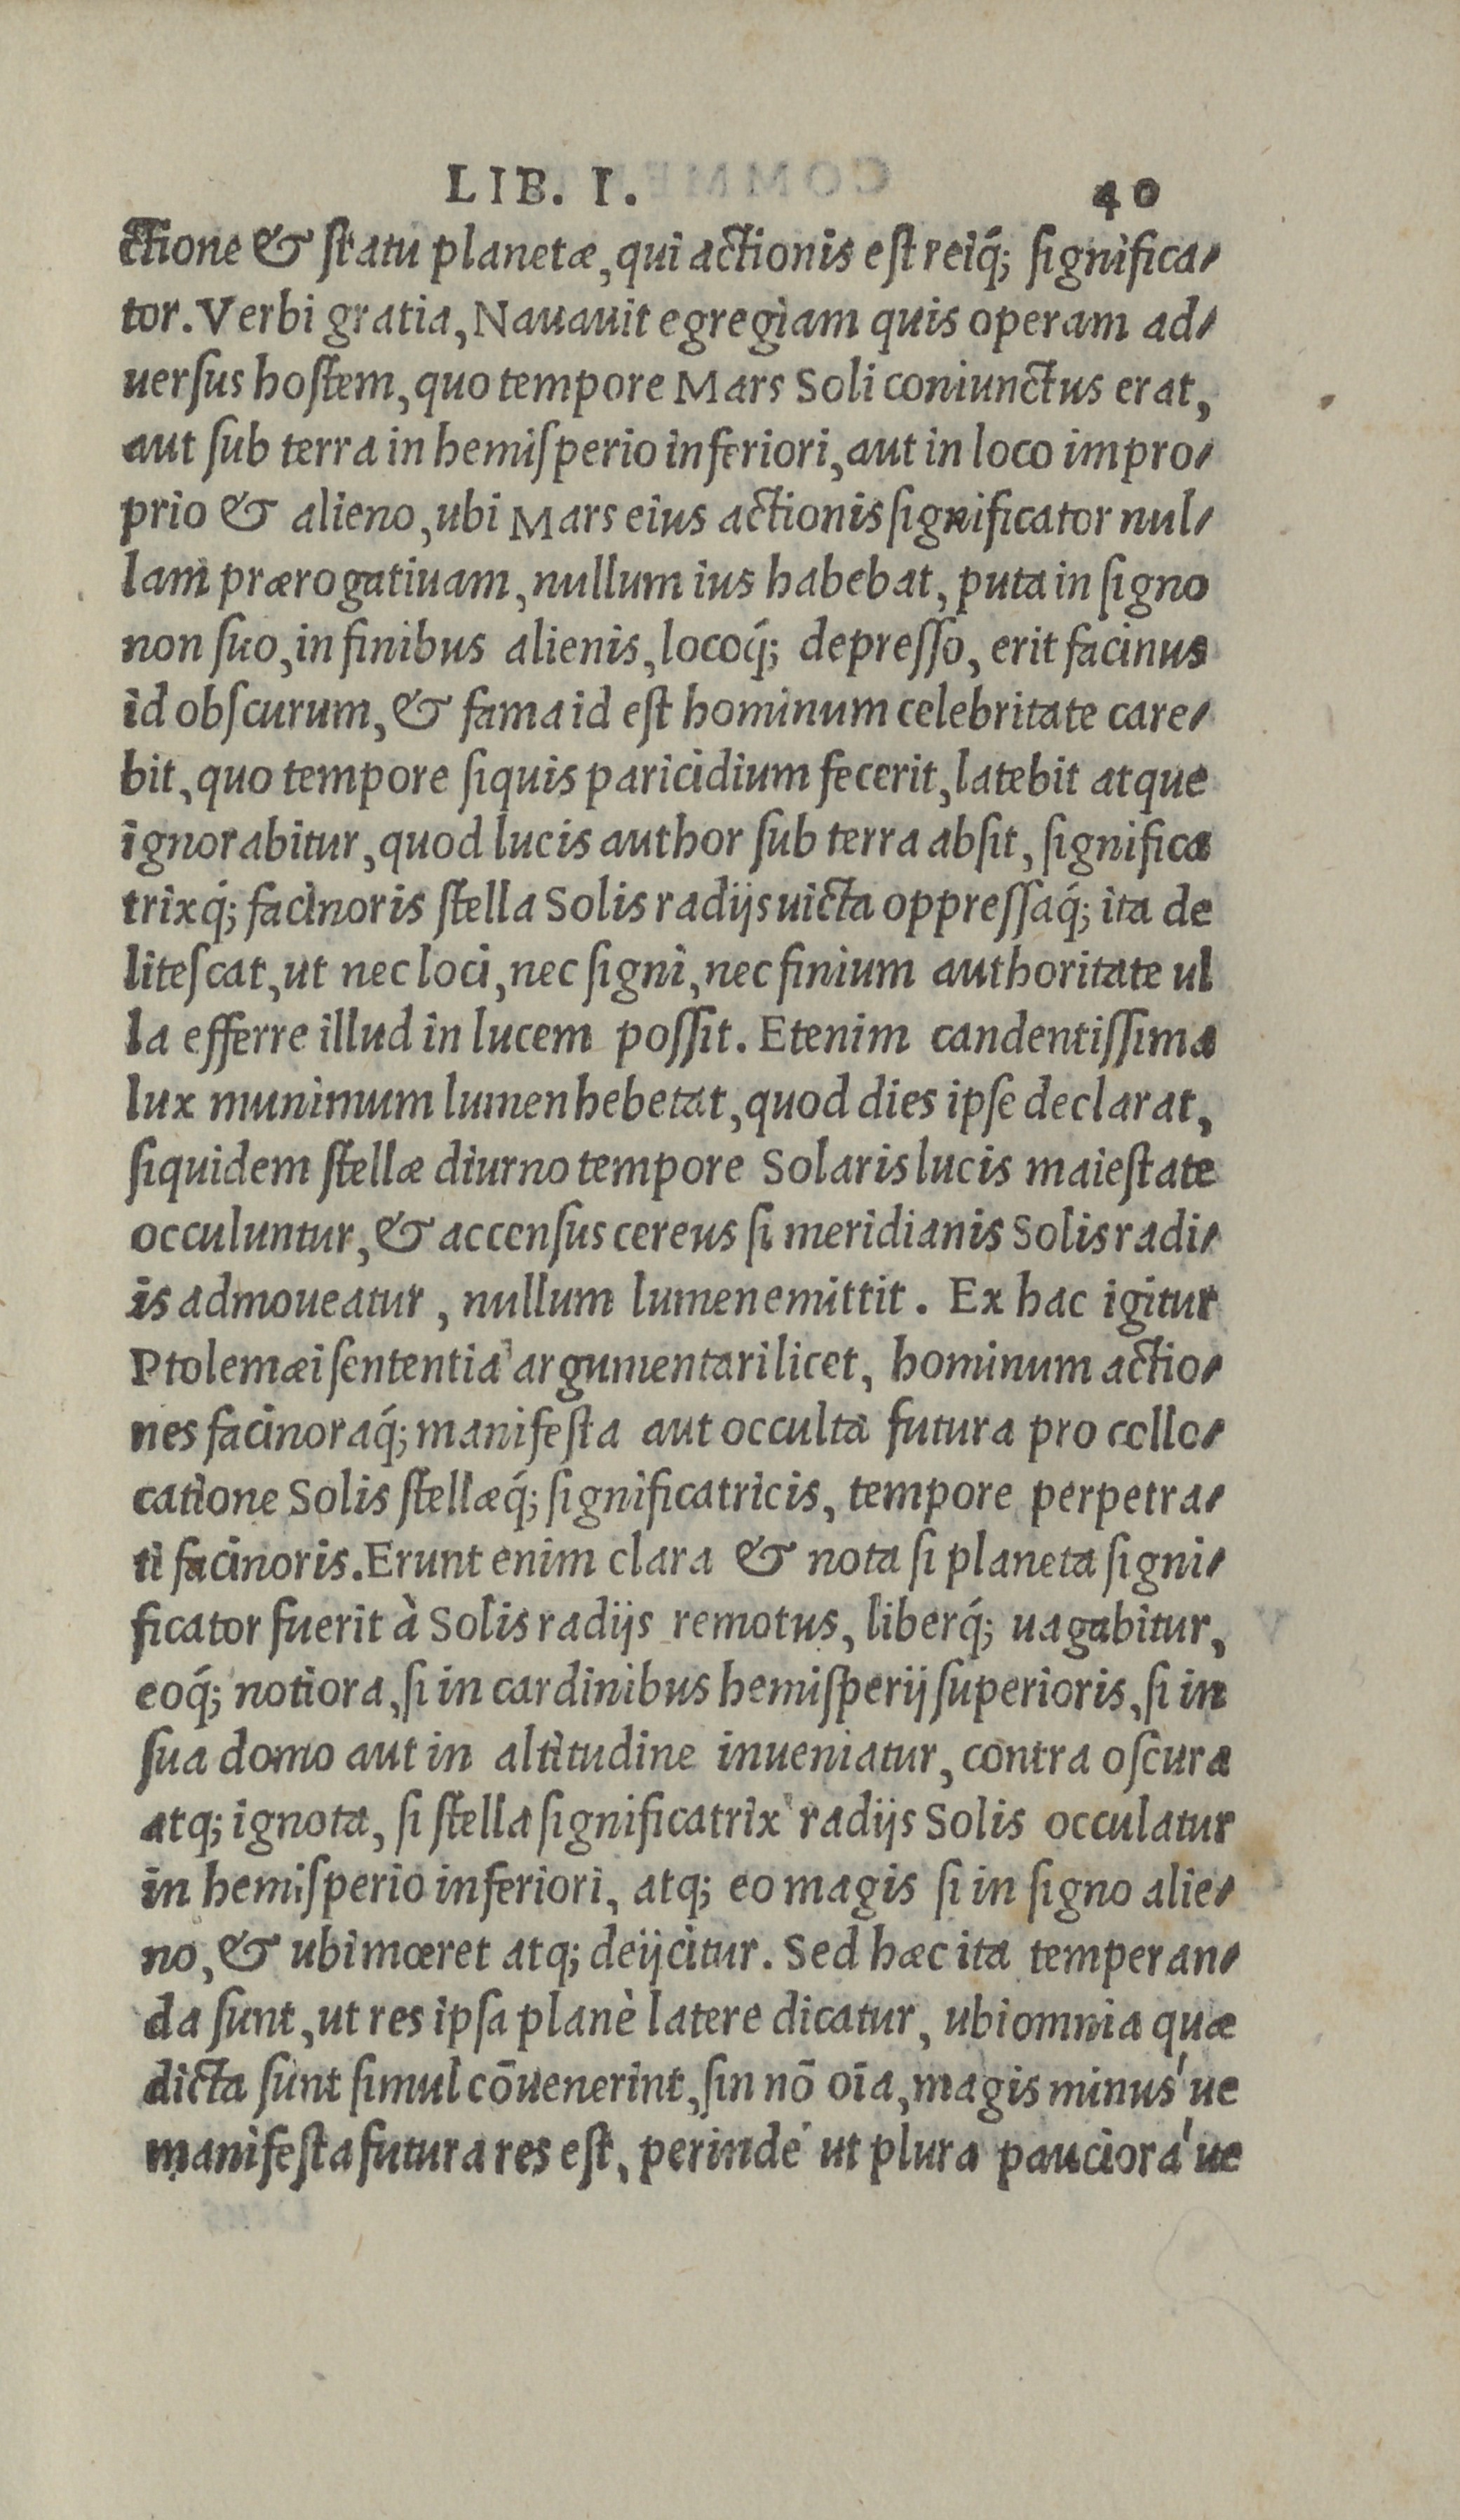 LIB. I. 40
ctione & ſtatu planetæ, qui actionis eſt reiq́; ſignifica-
tor. Verbi gratia, Nauauit egregiam quis operam ad-
uerſus hoſtem, quo tempore Mars Soli coniunctus erat,
aut ſub terra in hemiſperio inferiori, aut in loco impro-
prio & alieno, ubi Mars eius actionis ſignificator nul-
lam prærogatiuam, nullum ius habebat, puta in ſigno
non ſuo, in finibus alienis, locoq́; depreſſo, erit facinus
id obſcurum, & fama id eſt hominum celebritate care-
bit, quo tempore ſiquis paricidium fecerit, latebit atque
ignorabitur, quod lucis author ſub terra abſit, ſignifica
trixq́; facinoris ſtella Solis radijs uicta oppreſſaq́; ita de
liteſcat, ut nec loci, nec ſigni, nec finium authoritate ul
la efferre illud in lucem poſſit. Etenim candentiſſima
lux munimum lumen hebetat, quod dies ipſe declarat,
ſiquidem ſtellæ diurno tempore Solaris lucis maieſtate
occuluntur, & accenſus cereus ſi meridianis Solis radi-
is admoueatur, nullum lumen emittit. Ex hac igitur
Ptolemæi ſententia argumentari licet, hominum actio-
nes facinoraq́; manifeſta aut occulta futura pro collo-
catione Solis ſtellæq́; ſignificatricis, tempore perpetra-
ti facinoris. Erunt enim clara & nota ſi planeta ſigni-
ficator fuerit à Solis radijs remotus, liberq́; uagabitur,
eoq́; notiora, ſi in cardinibus hemiſperij ſuperioris, ſi in
ſua domo aut in altitudine inueniatur, contra oſcura
atq; ignota, ſi ſtella ſignificatrix radijs Solis occulatur
in hemiſperio inferiori, atq; eo magis ſi in ſigno alie-
no, & ubi mœret atq; deijcitur. Sed hæc ita temperan-
da ſunt, ut res ipſa planè latere dicatur, ubi omnia quæ
dicta ſunt ſimul cōuenerint, ſin nō oīa, magis minus'ue
manifeſta futura res eſt, perinde ut plura pauciora'ue